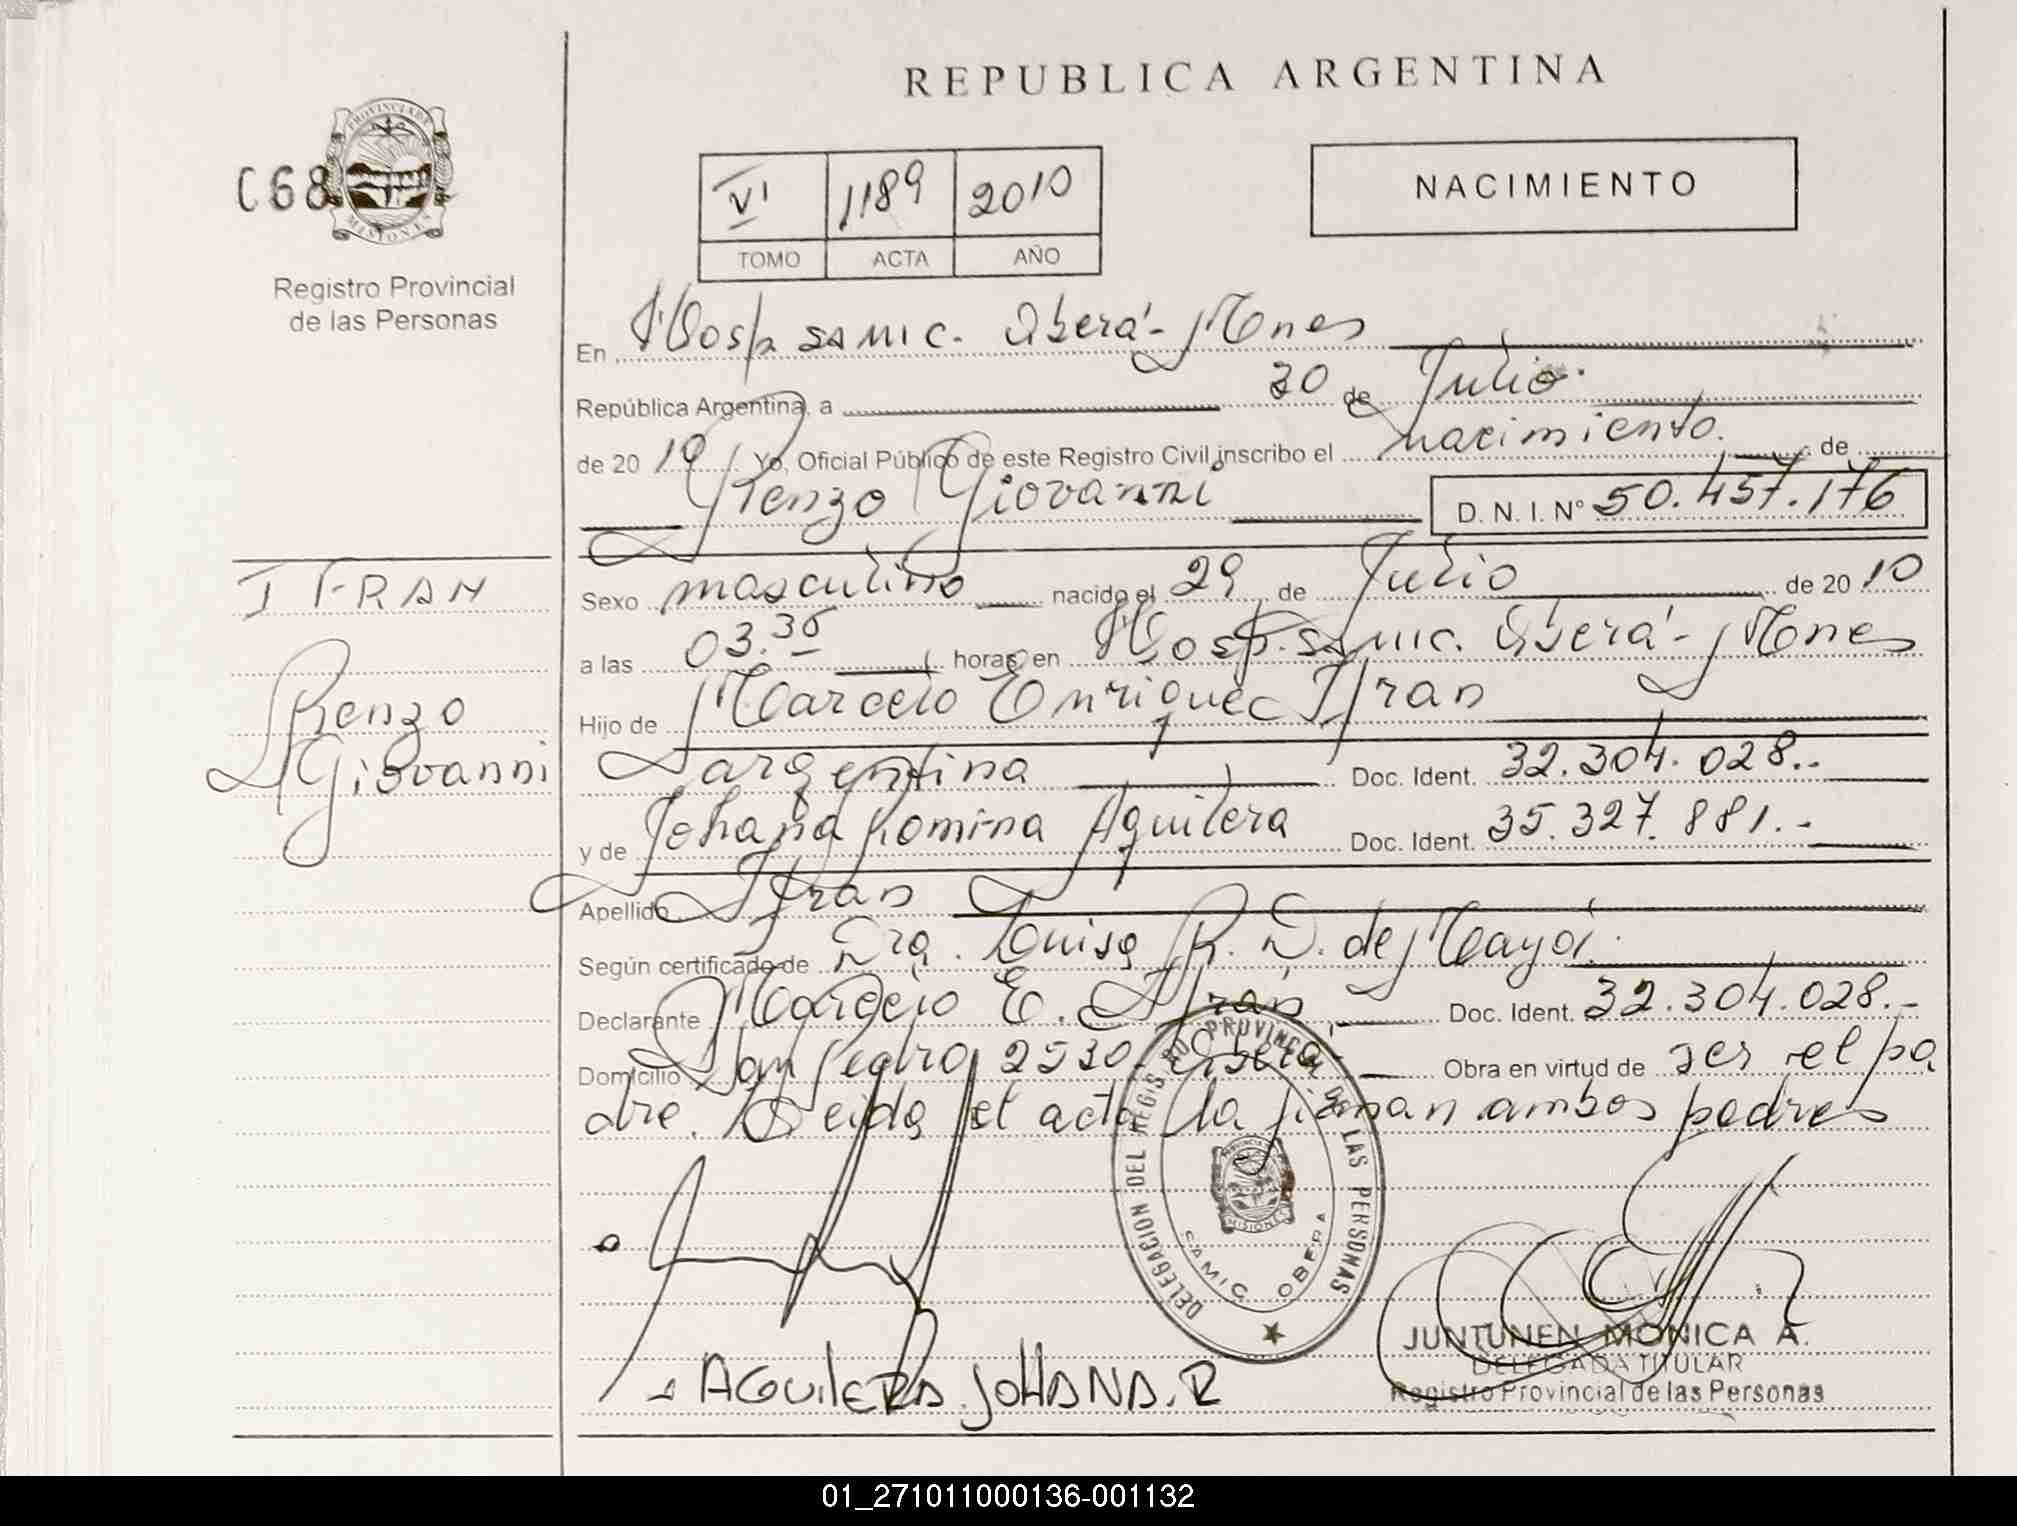 REPUBLICA ARGENTINA
C68
PROVINCIA DE MISIONES
Registro Provincial
de las Personas
VI 1189 2010
TOMO ACTA AÑO
NACIMIENTO
En Hosp SAMIC. Oberá - Mnes
República Argentina, a 30 de Julio.
de 20 10 Yo, Oficial Público de este Registro Civil inscribo el nacimiento. de
Renzo Giovanni D. N. I. Nº 50.457.176
IFRAN
Renzo
Giovanni
Sexo masculino nacido el 29 de Julio de 20 10
a las 03.35 horas en Hosp. SAMIC. Oberá - Mnes
Hijo de Marcelo Enrique Ifran
argentina Doc. Ident. 32.304.028.-
y de Johana Romina Aguilera Doc. Ident. 35.327.881.-
Apellido Ifran
Según certificado de Dra. Luisa R. D. de Mayol.
Declarante Marcelo E. Ifran Doc. Ident. 32.304.028.-
Domicilio San Pedro 2530 - Oberá Obra en virtud de ser el pa
dre. Leida el acta la firman ambos padres
DELEGACION DEL REGISTRO PROVINCIAL DE LAS PERSONAS
SAMIC OBERA
MISIONES
AGUILERA JOHANA. R
JUNTUNEN MONICA A.
DELEGADA TITULAR
Registro Provincial de las Personas
01_271011000136-001132